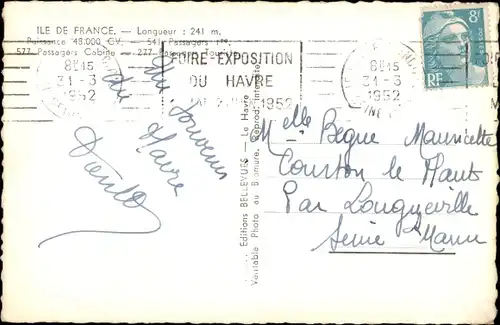 ILE DE FRANCE. — Longueur : 241 m.
Puissance 48.000 CV. — 541 Passagers 1re
577 Passagers Cabine — 277 Passagers Touristes
8H15
31-3
1952
FOIRE-EXPOSITION
DU HAVRE
1952
8H15
31-3
1952
8F
RF
Un souvenir
du Havre
Editions BELLEVUES — Le Havre
Véritable Photo au Bromure. Reprod. interdite
Melle Begue Mauricette
Couston le Hauts
Par Longueville
Seine Marine